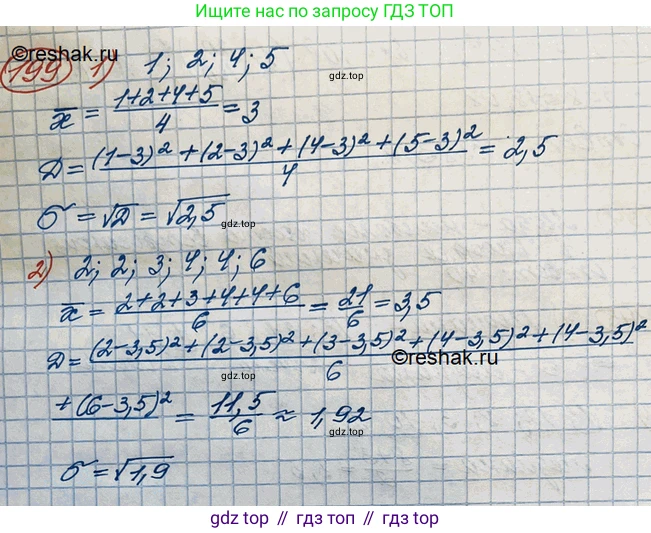 Ищите нас в поиске по запросу ГДЗ ТОП
©reshak.ru
199 1) 1; 2; 4; 5
gdz.top
x̅ = (1+2+4+5)/4 = 3
Д = ((1-3)² + (2-3)² + (4-3)² + (5-3)²)/4 = 2,5
σ = √Д = √2,5
gdz.top
2) 2; 2; 3; 4; 4; 6
x̅ = (2+2+3+4+4+6)/6 = 21/6 = 3,5
Д = ((2-3,5)² + (2-3,5)² + (3-3,5)² + (4-3,5)² + (4-3,5)²)/6
©reshak.ru
gdz.top
+ (6-3,5)² = 11,5/6 ≈ 1,92
σ = √1,9
gdz.top // гдз топ // gdz top